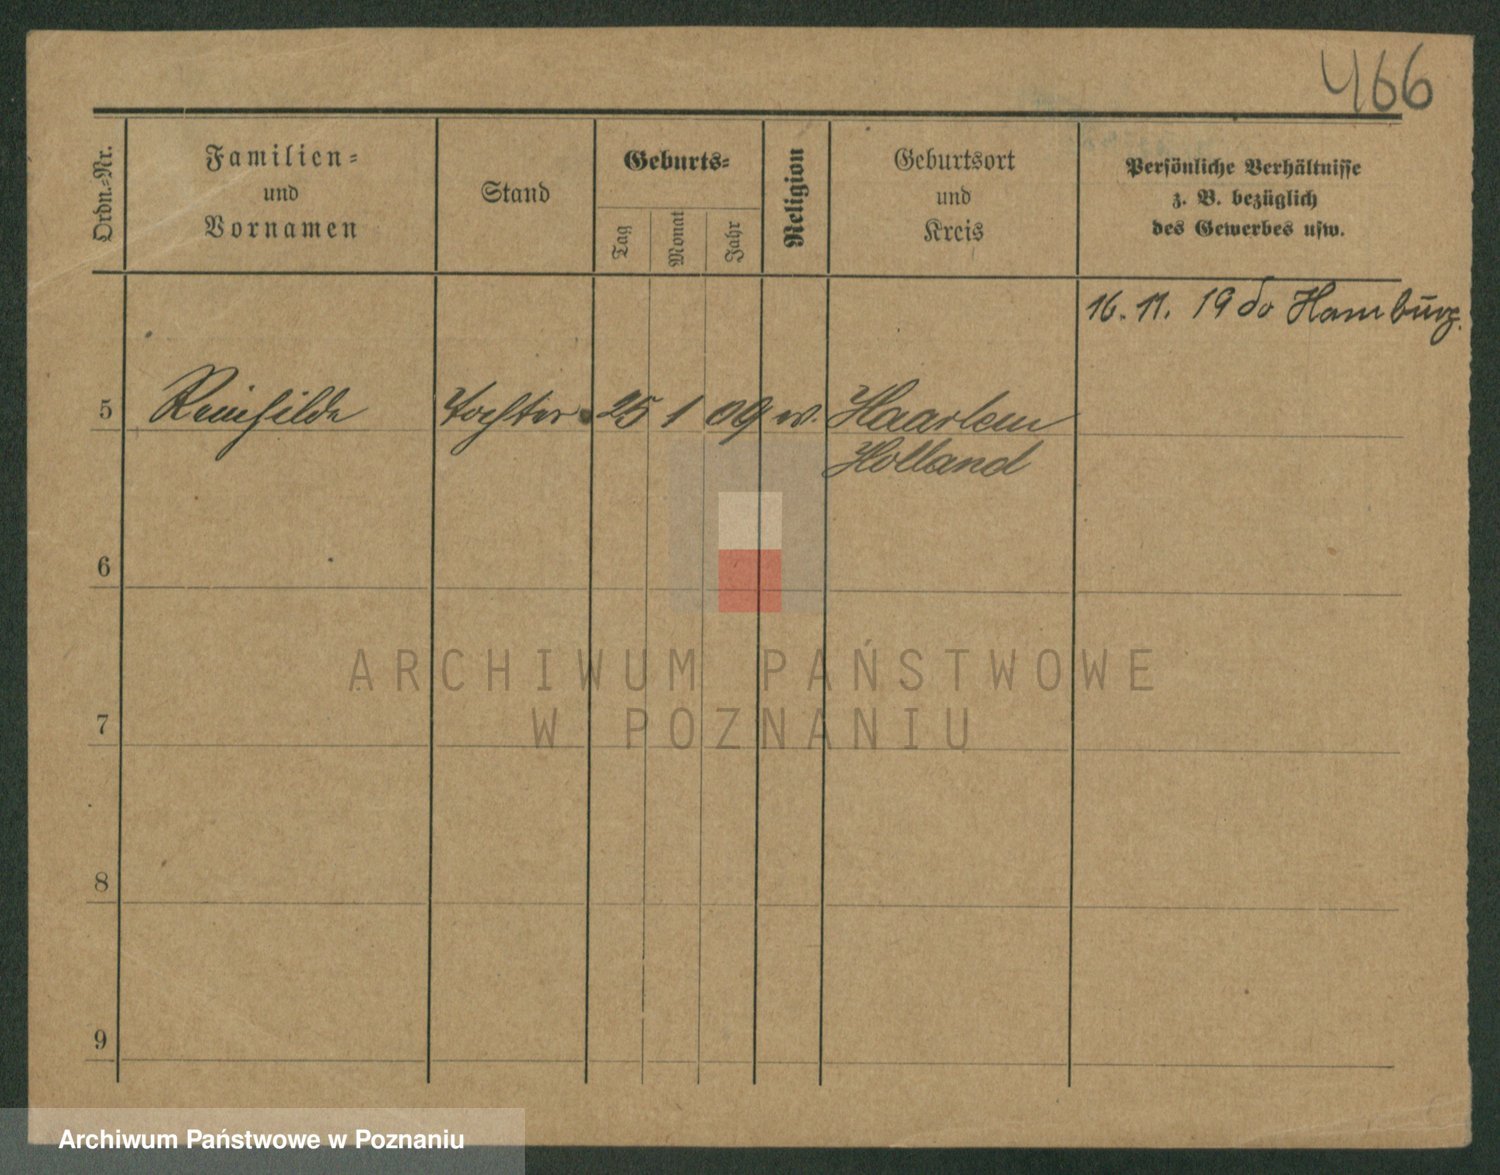 466
Ordn.-Nr.
Familien-
und
Vornamen
Stand
Geburts-
Tag
Monat
Jahr
Religion
Geburtsort
und
Kreis
Persönliche Verhältnisse
z. B. bezüglich
des Gewerbes usw.
16. 11. 19 do Hamburg.
5 Reinhilde Tochter 25 1 09 w. Haarlem
Holland
6
7
8
9
ARCHIWUM PAŃSTWOWE
W POZNANIU
Archiwum Państwowe w Poznaniu